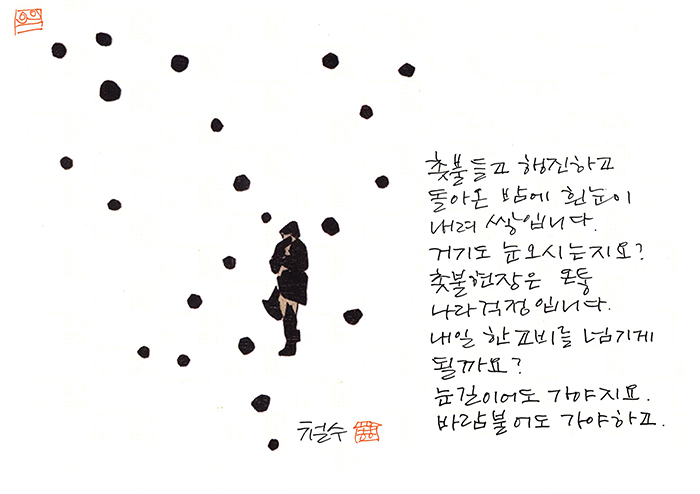 촛불들고 행진하고
돌아온 밤에 흰눈이
내려 쌓입니다.
거기도 눈오시는지요?
촛불현장은 온통
나라걱정입니다.
내일 한고비를 넘기게
될까요?
눈길이어도 가야지요.
바람불어도 가야하고.
철수